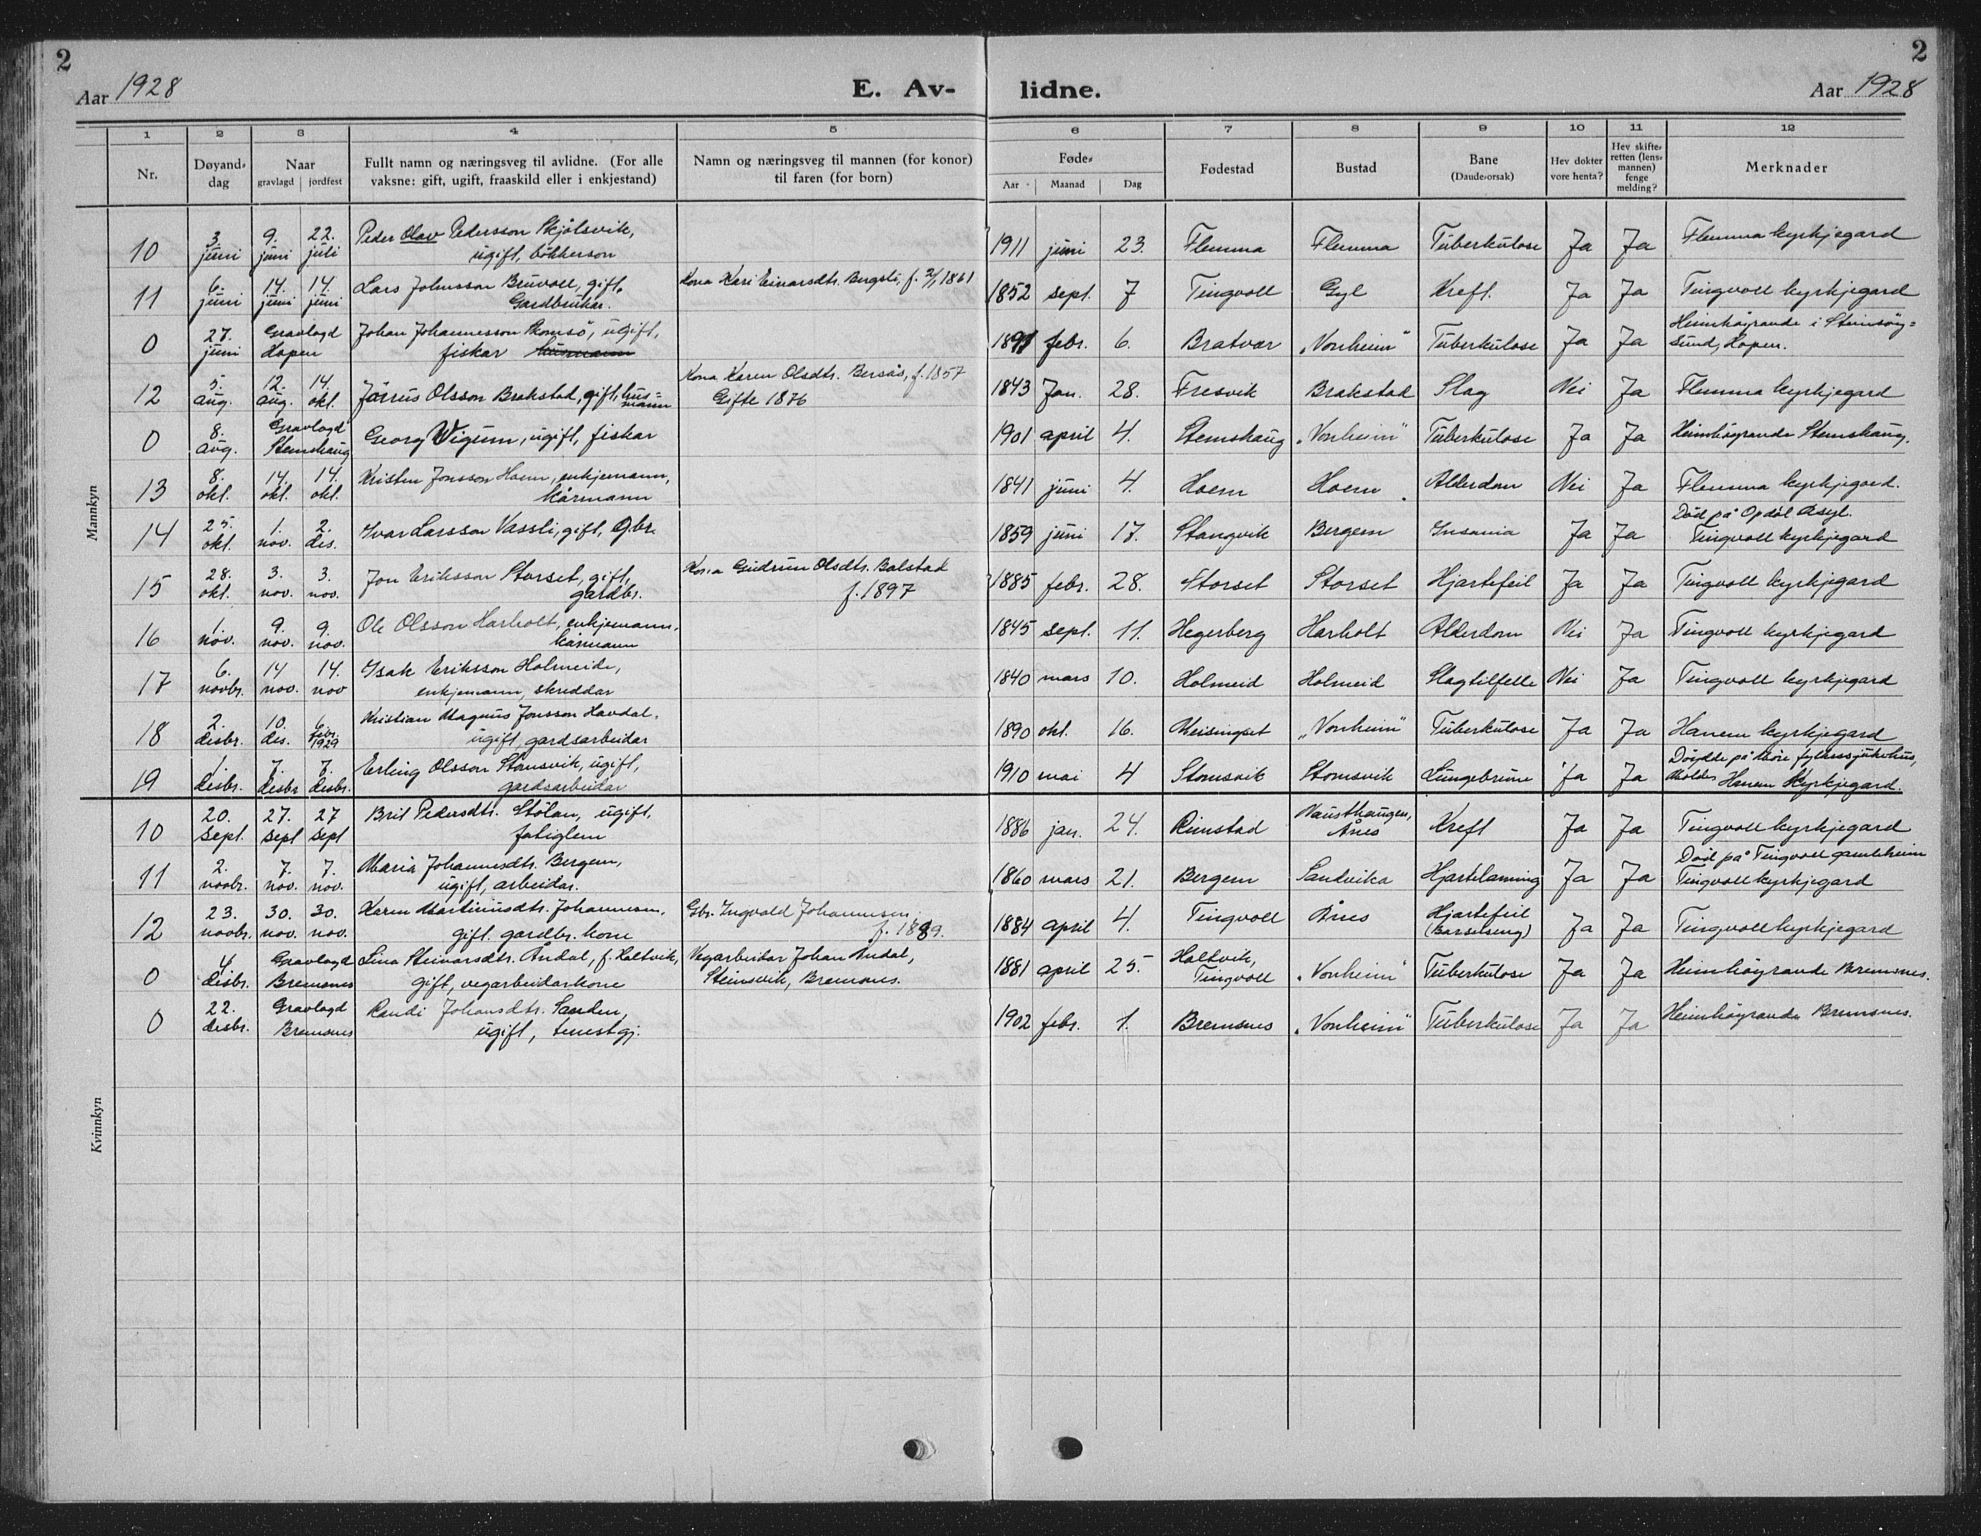 2
2
Aar 1928
E. Av-
lidne.
Aar 1928
1 2 3 4 5 6 7 8 9 10 11 12
Nr.
Døyand-dag
Naar
gravlagd | jordfest
Fullt namn og næringsveg til avlidne. (For alle
vaksne: gift, ugift, fraaskild eller i enkjestand)
Namn og næringsveg til mannen (for konor)
til faren (for born)
Føde-
Aar Maanad Dag
Fødestad
Bustad
Bane
(Daudeorsak)
Hev dokter
vore henta?
Hev skifte-
retten (lens-
mannen)
fenge
melding?
Merknader
Mannkyn
10 3. juni 9. juni 22. juli Peder Olav Pedersson Skjølsvik, ugift, bökkerson 1911 juni 23. Flemma Flemma Tuberkulose Ja Ja Flemma kyrkjegard
11 6. juni 14. juni 14. juni Lars Johnsson Bruvoll, gift, Gardbrukar. Kona Kari Einarsdtr. Bergsli, f. 2/1 1861 1852 sept. 7 Tingvoll Gyl Kreft. Ja Ja Tingvoll kyrkjegard
0 27. juni Gravlagd Hopen Johan Johannesson Romsö, ugift, fiskar husmann 1897 febr. 6. Bratvær „Vonheim" Tuberkulose Ja Ja Heimhøyrande i Steinsöysund, Hopen.
12 5. aug. 12. aug. 14. okt. Jörus Olsson Brakstad, gift, husmann Kona Karen Olsdtr. Bersås, f. 1857 Gifte 1876 1843 Jan. 28. Fresvik Brakstad Slag Nei Ja Flemma kyrkjegard
0 8. aug. Gravlagd Stemshaug Georg Vigum, ugift, fiskar 1901 april 4. Stemshaug „Vonheim" Tuberkulose Ja Ja Heimhøyrande Stemshaug.
13 8. okt. 14. okt. 14. okt. Kristen Jonsson Hoem, enkjemann, kårmann 1841 juni 4. Hoem Hoem Alderdom Nei Ja Flemma kyrkjegard.
14 25. okt. 1. nov. 2. des. Ivar Larsson Vassli, gift, gbr. 1859 juni 17. Stangvik Bergem Insania Ja Ja Död på Opdöl Asyl. Tingvoll kyrkjegard
15 28. okt. 3. nov. 3. nov. Jon Eriksson Storset, gift, gardbr. Kona Gudrun Olsdtr. Bolstad f. 1897 1885 febr. 28. Storset Storset Hjartefeil Ja Ja Tingvoll kyrkjegard
16 1. nov. 9. nov. 9. nov. Ole Olsson Harholt, enkjemann, kårmann 1845 sept. 11. Hegerberg Harholt Alderdom Nei Ja Tingvoll kyrkjegard
17 6. novbr. 14 nov. 14. nov Isak Eriksson Holmeide, enkjemann, skreddar 1840 mars 10. Holmeid Holmeid Slagtilfelle Nei Ja Tingvoll kyrkjegard
18 2. desbr. 10. des. 6. febr. 1929 Kristian Magnus Jonsson Havdal, ugift, gardsarbeidar 1890 okt. 16. Meisingset „Vonheim" Tuberkulose Ja Ja Hanem kyrkjegard
19 1. desbr. 7. desbr 7. desbr. Erling Olsson Stomsvik, ugift, gardsarbeidar 1910 mai 4 Stomsvik Stomsvik Lungebrune Ja Ja Döydde på Möre fylkessjukehus, Molde. Hanem Kyrkjegard.
Kvinnkyn
10 20. sept. 27. sept 27 sept Brit Pedersdtr. Stölan, ugift, fatiglem 1886 jan. 24. Rimstad Nausthaugen, Årnes Kreft Ja Ja Tingvoll kyrkjegard
11 2. novbr. 7. nov. 7. nov. Maria Johannesdtr. Bergem, ugift, arbeidar. 1860 mars 21. Bergem Sandvika Hjartelaming Ja Ja Död på Tingvoll gamleheim Tingvoll kyrkjegard
12 23. novbr. 30. nov. 30. nov. Karen Martinusdtr. Johannesen, gift. gardbr. kone Gbr. Ingvald Johannesen, f. 1889. 1884 april 4. Tingvoll Årnes Hjartefeil (Barselseng) Ja Ja Tingvoll kyrkjegard
0 4 desbr. Gravlagd Bremsnes Lina Steinarsdtr. Åndal, f. Holtvik, gift, vegarbeidarkone Vegarbeidar Johan Åndal, Steinsvik, Bremsnes. 1881 april 25. Holtvik, Tingvoll „Vonheim" Tuberkulose Ja Ja Heimhøyrande Bremsnes.
0 22. desbr. Gravlagd Bremsnes Randi Johansdtr. Sanden, ugift, tenestgj. 1902 febr. 1. Bremsnes „Vonheim" Tuberkulose Ja Ja Heimhøyrande Bremsnes.